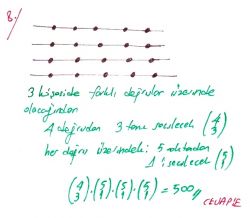 8-)
3 köşeside farklı doğrular üzerinde
olacağından
4 doğrudan 3 tane seçilecek (4 3)
her doğru üzerindeki 5 noktadan
1'i seçilecek (5 1)
(4 3).(5 1).(5 1).(5 1) = 500//
CEVAP E